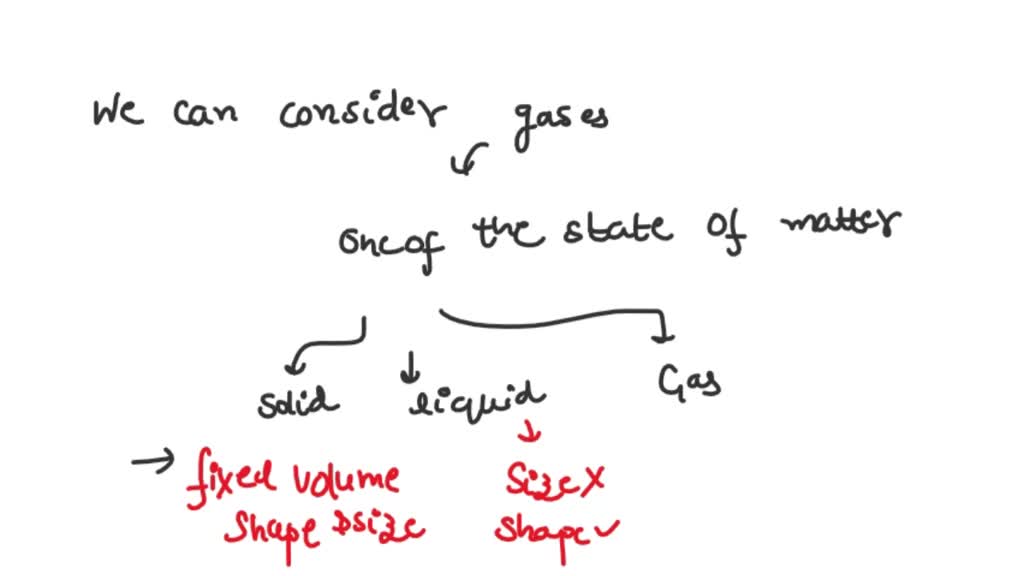 We can consider gases
one of the state of matter
solid liquid Gas
fixed volume size x
shape & size shape ✓